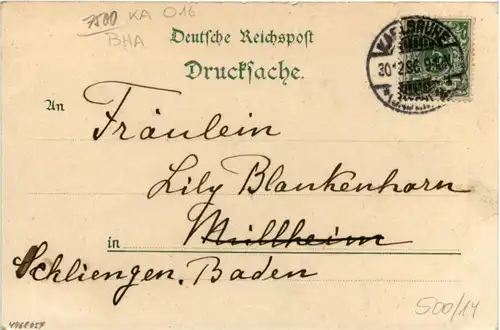 7500 KA 016
BHA
Deutsche Reichspost
Drucksache.
KARLSRUHE
30 12 96
(BADEN)
An
Fräulein
Lily Blankenhorn
in Müllheim
Schliengen, Baden
500/14